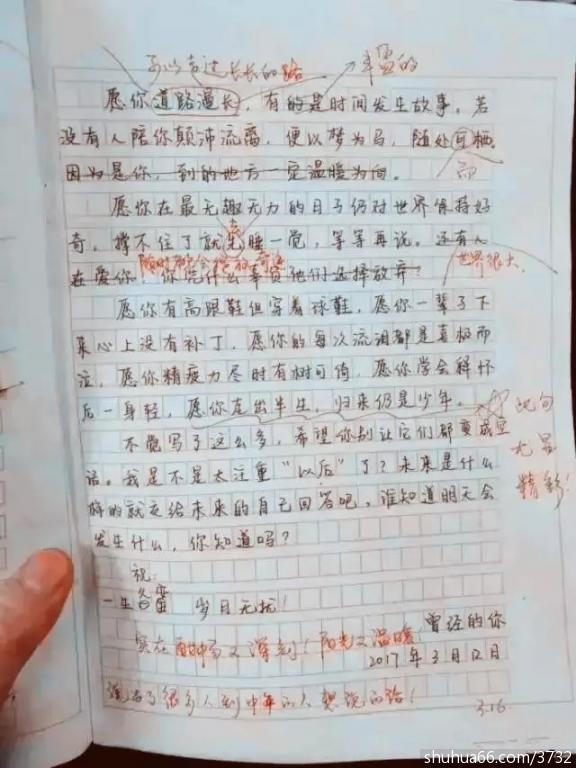 可以奔过长长的路 丰盈的
愿你道路漫长，有的是时间发生故事。若
没有人陪你颠沛流离，便以梦为马，随处可栖。
因为是你，到的地方一定温暖为向。
愿你在最无趣无力的日子仍对世界保持好
奇。撑不住了就先睡一觉，等等再说。还有人
随时都会
世界很大
在爱你，你凭什么辜负他们选择放弃？
愿你有高跟鞋但穿着球鞋，愿你一辈子下
来心上没有补丁，愿你的每次流泪都是喜极而
泣，愿你精疲力尽时有树可倚，愿你学会释怀
后一身轻，愿你走出半生，归来仍是少年。
此句
尤显
精彩！
不觉写了这么多，希望你别让它们都变成空
话。我是不是太注重“以后”了？未来是什么
样的就交给未来的自己回答吧，谁知道明天会
发生什么，你知道吗？
祝：
一生备蕾 岁月无扰！
实在 又深刻！阳光又温暖！
曾经的你
2017年3月12日
说出了很多人到中年的人想说的话！
3.16
shuhua66.com/3732